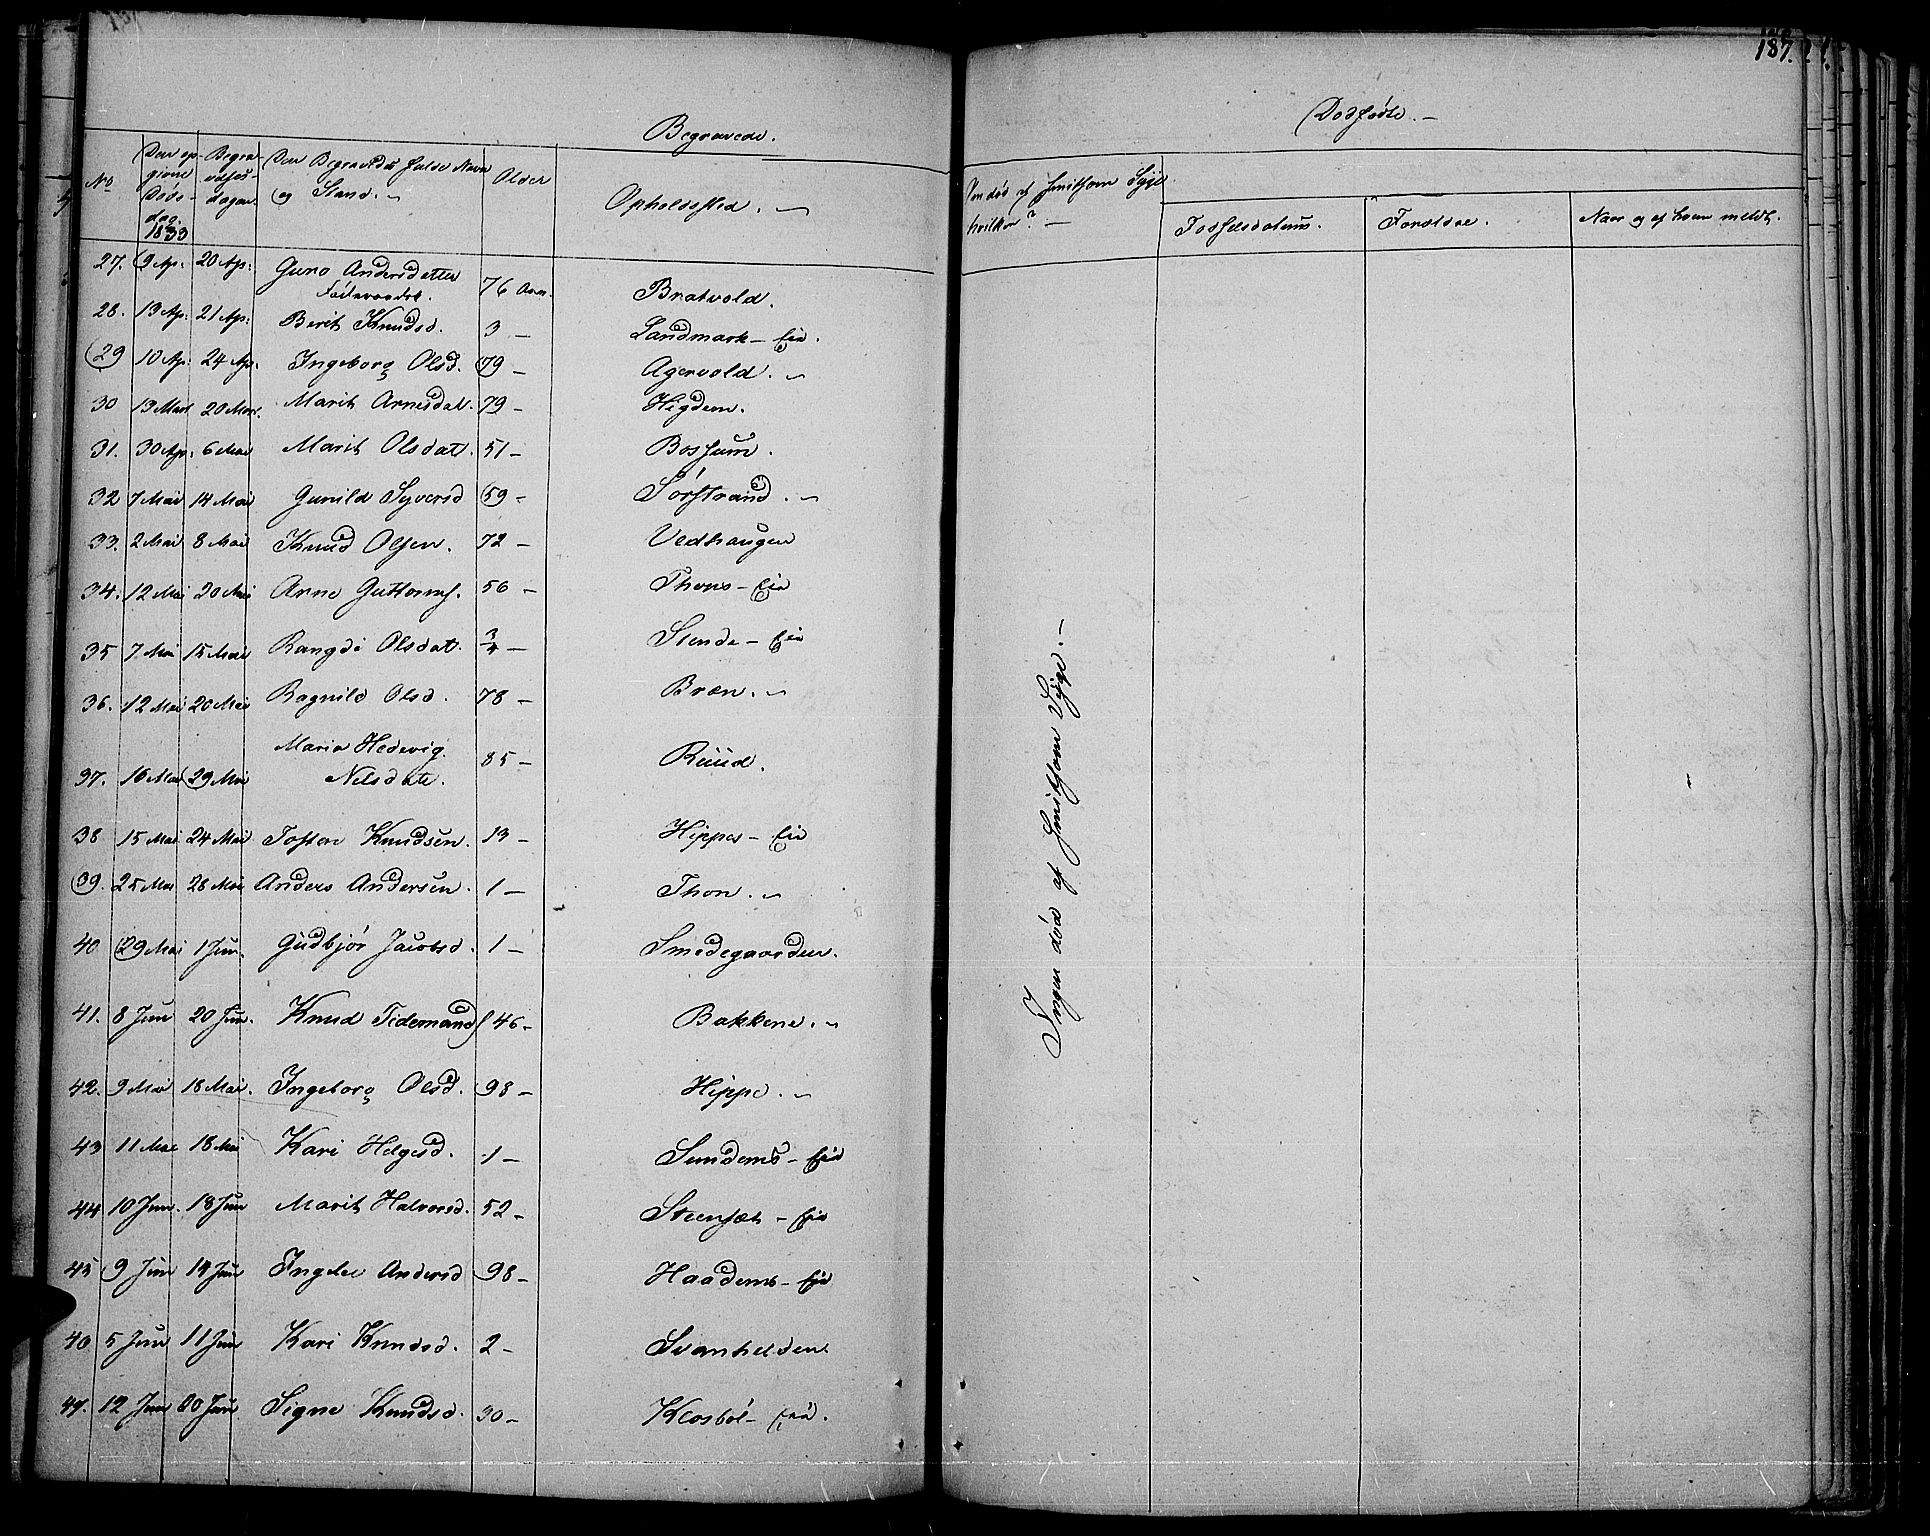 187.
Begravede.
No
Den op-
givne
Døds-
dag.
1833
Begra-
velses-
dagen.
Den Begravedes fulde Navn
og Stand.
Alder
Opholdssted.
27. 9 Ap. 20 Ap: Guro Andersdatter 76 Aar. Bratvold.
28. 13 Ap: 21 Ap: Berit Knudsd. 3 – Landmark – Eie.
29 10 Ap. 24 Ap. Ingeborg Olsd. 79 – Agervold.
30 13 Mart 20 Mart. Marit Arnesdat. 79 – Higdem.
31. 30 Ap. 6 Mai Marit Olsdat. 51 – Bossum.
32 7 Mai 14 Mai Gunild Syversd 59 – Sørstrand.
33. 2 Mai 8 Mai Knud Olsen. 72 – Vedhaugen
34. 12 Mai 20 Mai Arne Guttorms. 56 – Thons – Eie
35 7 Mai 15 Mai Rangdi Olsdat. 3/4 – Stende – Eie
36. 12 Mai 20 Mai Ragnild Olsd. 78 – Bræn.
37. 16 Mai 29 Mai Maria Hedevig
Nilsdate. 85 – Ruud.
38 15 Mai 24 Mai Tosten Knudsen. 13 – Hippes – Eie
39. 25 Mai 28 Mai Anders Andersen. 1 – Thon.
40 29 Mai 1 Jun. Gudbjør Jacobsd. 1 – Smedegaarden.
41. 8 Jun 20 Jun. Knud Tidemands 46 – Bakkene.
42. 9 Mai 18 Mai. Ingeborg Olsd. 98 – Hippe.
43 11 Mai 18 Mai Kari Helgesd. 1 – Sundems – Eie
44 10 Jun. 18 Jun Marit Halvorsd. 52 – Steensæt – Eie
45 9 Jun 14 Jun Ingelei Andersd 98 – Haadems – Eie
46 5 Jun 11 Jun Kari Knudsd. 2 – Svanhelden
47. 12 Jun 20 Jun Signe Knudsd. 30 – Klosbøl – Eie.
Dødfødte. –
Om død af smitsom Syge
hvilken? –
Fødselsdatum.
Forældre.
Naar og af hvem meldt.
Ingen død af smitsom Syge. –